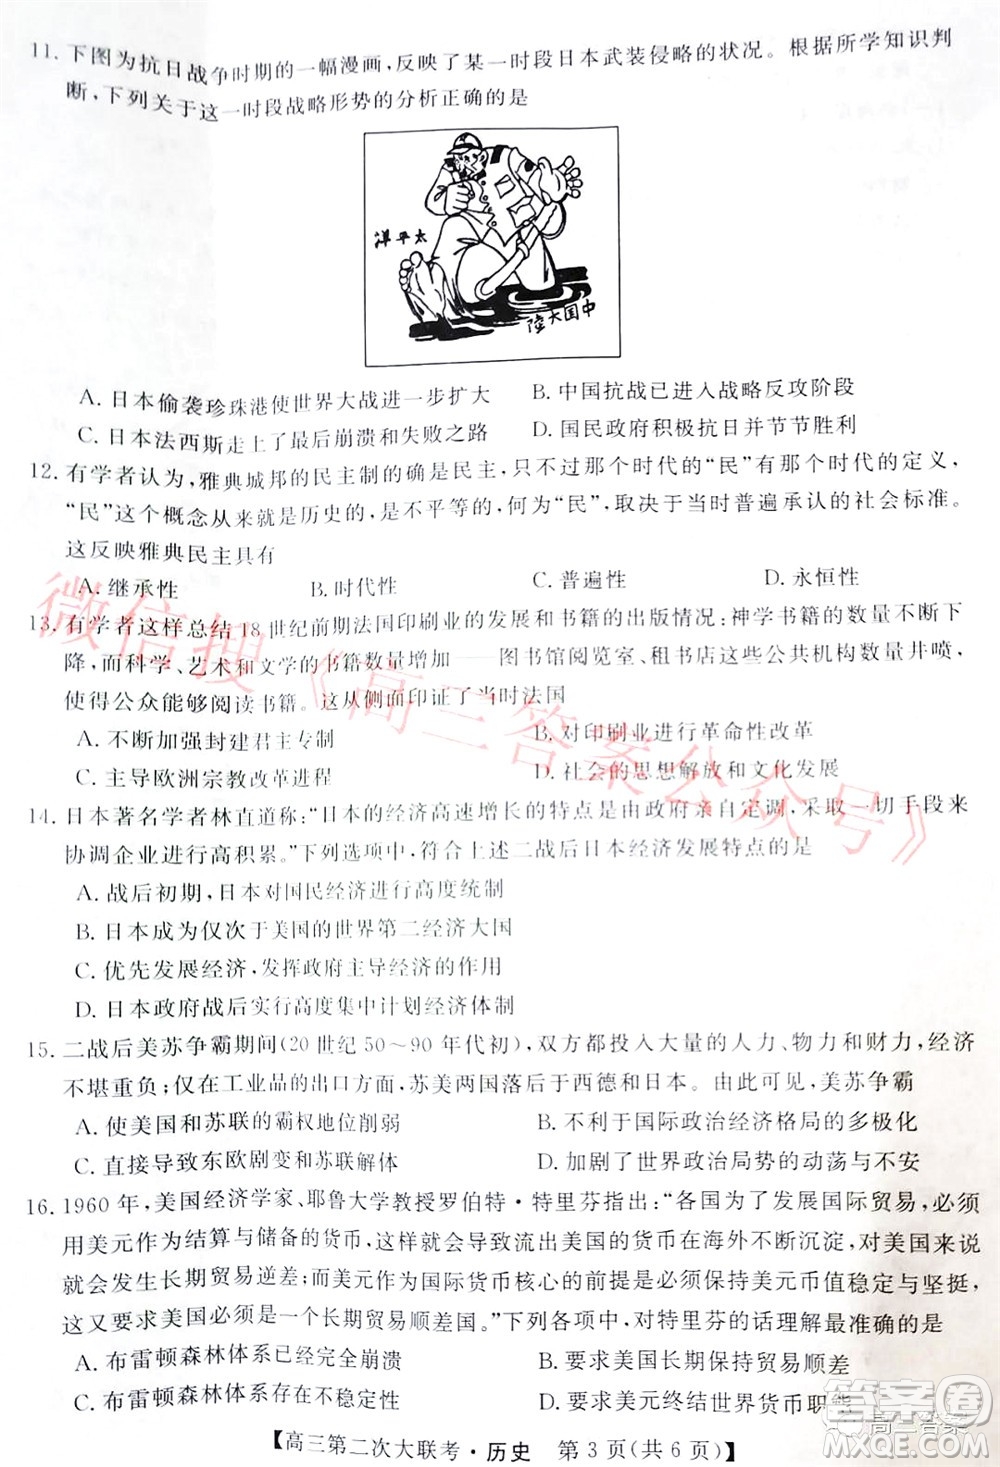 11. 下图为抗日战争时期的一幅漫画,反映了某一时段日本武装侵略的状况。根据所学知识判
断,下列关于这一时段战略形势的分析正确的是
洋平太
陸大国中
A. 日本偷袭珍珠港使世界大战进一步扩大
B. 中国抗战已进入战略反攻阶段
C. 日本法西斯走上了最后崩溃和失败之路
D. 国民政府积极抗日并节节胜利
12. 有学者认为,雅典城邦的民主制的确是民主,只不过那个时代的“民”有那个时代的定义,
“民”这个概念从来就是历史的,是不平等的,何为“民”,取决于那个时代普遍承认的社会标准。
这反映雅典民主具有
A. 继承性
B. 时代性
C. 普遍性
D. 永恒性
13. 有学者这样总结18世纪前期法国印刷业的发展和书籍的出版情况:神学书籍的数量不断下
降,而科学、艺术和文学的书籍数量增加——图书馆阅览室、租书店这些公共机构数量井喷,
使得公众能够阅读书籍。这从侧面印证了当时法国
A. 不断加强封建君主专制
B. 对印刷业进行革命性改革
C. 主导欧洲宗教改革进程
D. 社会的思想解放和文化发展
14. 日本著名学者林直道称:“日本的经济高速增长的特点是由政府亲自定调,采取一切手段来
协调企业进行高积累。”下列选项中,符合上述二战后日本经济发展特点的是
A. 战后初期,日本对国民经济进行高度统制
B. 日本成为仅次于美国的世界第二经济大国
C. 优先发展经济,发挥政府主导经济的作用
D. 日本政府战后实行高度集中计划经济体制
15. 二战后美苏争霸期间(20世纪50~90年代初),双方都投入大量的人力、物力和财力,经济
不堪重负;仅在工业品的出口方面,苏美两国落后于西德和日本。由此可见,美苏争霸
A. 使美国和苏联的霸权地位削弱
B. 不利于国际政治经济格局的多极化
C. 直接导致东欧剧变和苏联解体
D. 加剧了世界政治局势的动荡与不安
16. 1960年,美国经济学家、耶鲁大学教授罗伯特·特里芬指出:“各国为了发展国际贸易,必须
用美元作为结算与储备的货币,这样就会导致流出美国的货币在海外不断沉淀,对美国来说
就会发生长期贸易逆差;而美元作为国际货币核心的前提是必须保持美元币值稳定与坚挺,
这又要求美国必须是一个长期贸易顺差国。”下列各项中,对特里芬的话理解最准确的是
A. 布雷顿森林体系已经完全崩溃
B. 要求美国必须保持贸易顺差
C. 布雷顿森林体系存在不稳定性
D. 要求美元终结世界货币职能
【高三第二次大联考·历史 第3页(共6页)】
微信搜《高三答案公众号》
答案圈
高三答案
MXQE.COM